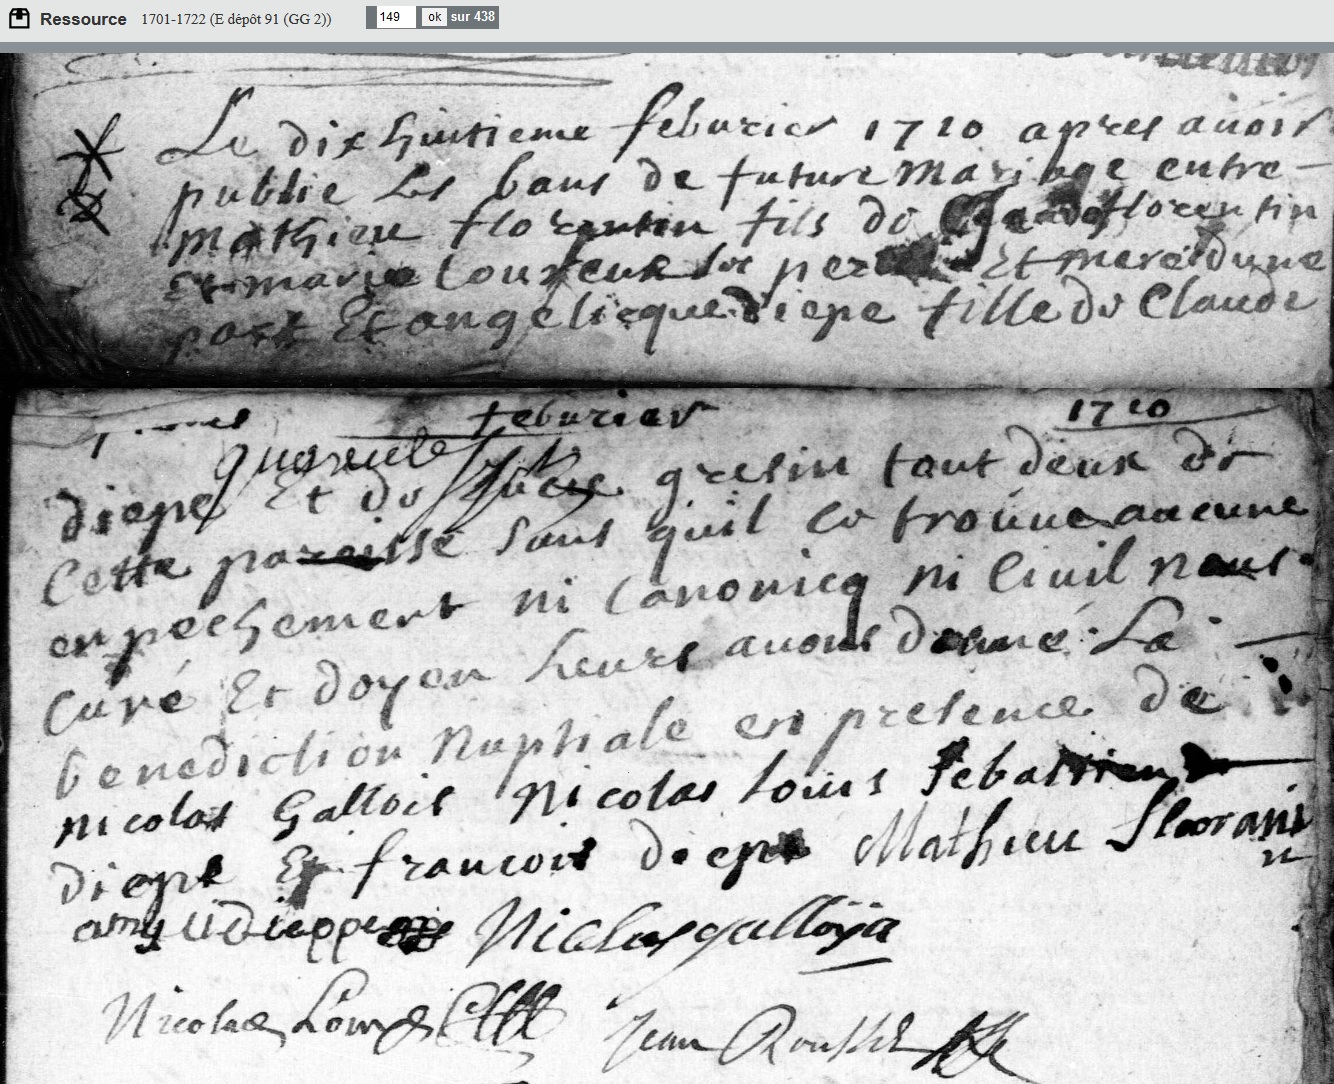 Ressource 1701-1722 (E dépôt 91 (GG 2)) 149 ok sur 438
Le dix huitieme feburier 1710 apres auoir
publie Les bans de future mariage entre
mathieu florentin fils de florentin
Et marie pere Et mere dune
part Et angelicque diepe fille de Claude
feburier 1710
diepe Et de gresin tout deux de
Cette paroisse sans quil ce trouue aucune
enpechement ni Canonicq ni Ciuil nous
Curé Et doyen leurs auons donné La
benediction Nuptiale en presence de
nicolas Gallois Nicolas louis sebastien
diepe Et francois diepe Mathieu florani
n
dieppe Nicolas galloÿs
Nicolas Louys
Jean